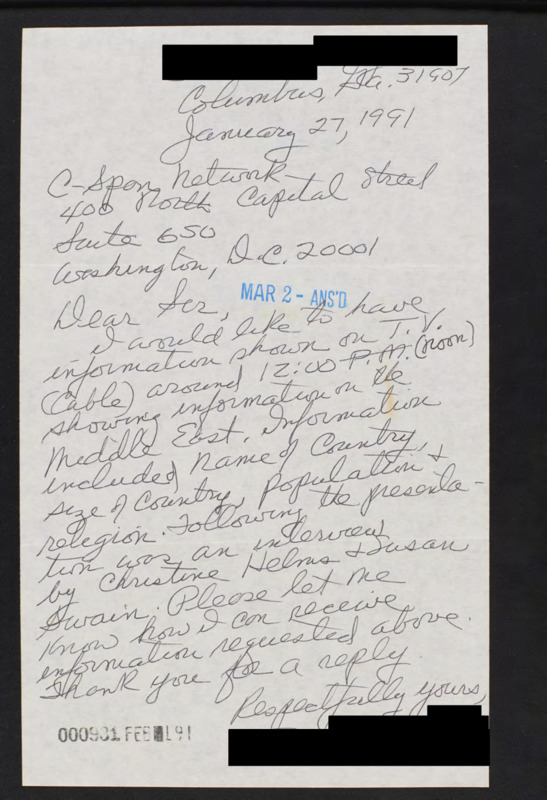 Columbus, Ga. 31907
January 27, 1991
C-Span Network
400 North Capital Street
Suite 650
Washington, D.C. 20001
MAR 2 - ANS'D
Dear Sir,
I would like to have
information shown on T.V.
(Cable) around 12:00 P.M. (noon)
showing information on the
Middle East. Information
included Name of Country,
size of Country, Population &
relegion. Following the presenta-
tion was an interview
by Christine Helms & Susan
Swain. Please let me
know how I can receive
information requested above.
Thank you for a reply.
Respectfully yours,
000931 FEB 91